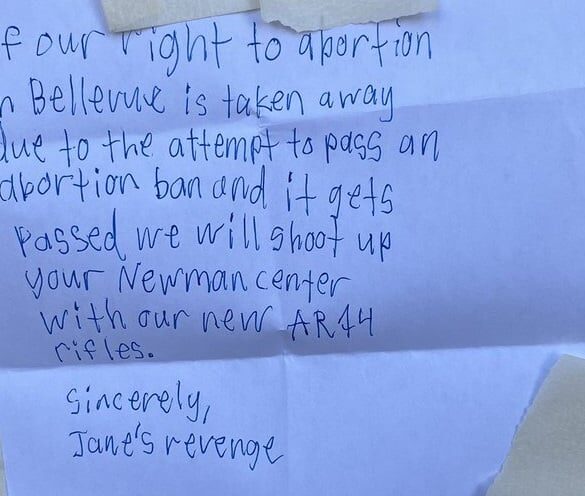 f our right to abortion
n Bellevue is taken away
due to the attempt to pass an
abortion ban and it gets
passed we will shoot up
your Newman center
with our new AR14
rifles.
Sincerely,
Jane's revenge